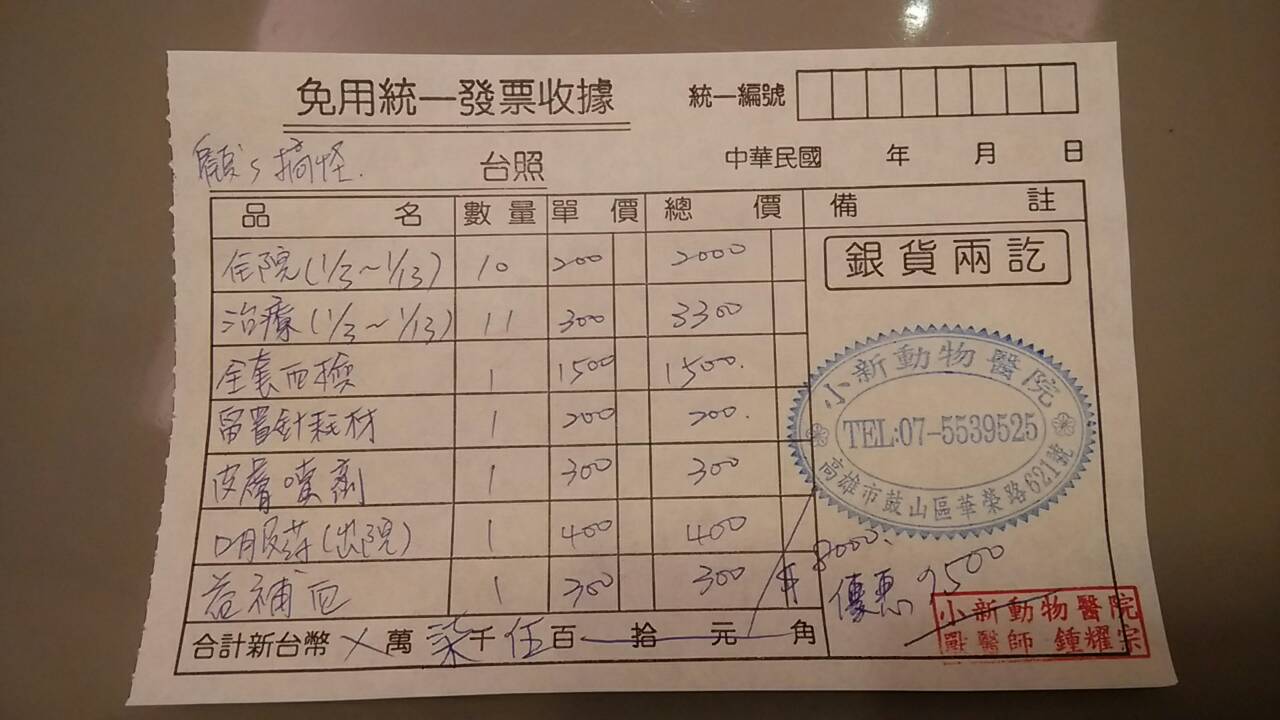 免用統一發票收據 統一編號
顧ヽ搞怪. 台照 中華民國 年 月 日
品名 數量 單價 總價 備註
住院(1/3~1/13) 10 200 2000
銀貨兩訖
治療(1/3~1/13) 11 300 3300
全套血檢 1 1500 1500.
留置針耗材 1 200 200.
皮膚噴劑 1 300 300
口服葯(出院) 1 400 400
益補血 1 300 300
小新動物醫院
TEL:07-5539525
高雄市鼓山區華榮路621號
8000.
優惠 7500
小新動物醫院
獸醫師 鍾耀宗
合計新台幣 ㄨ 萬 柒 千 伍 百 拾 元 角